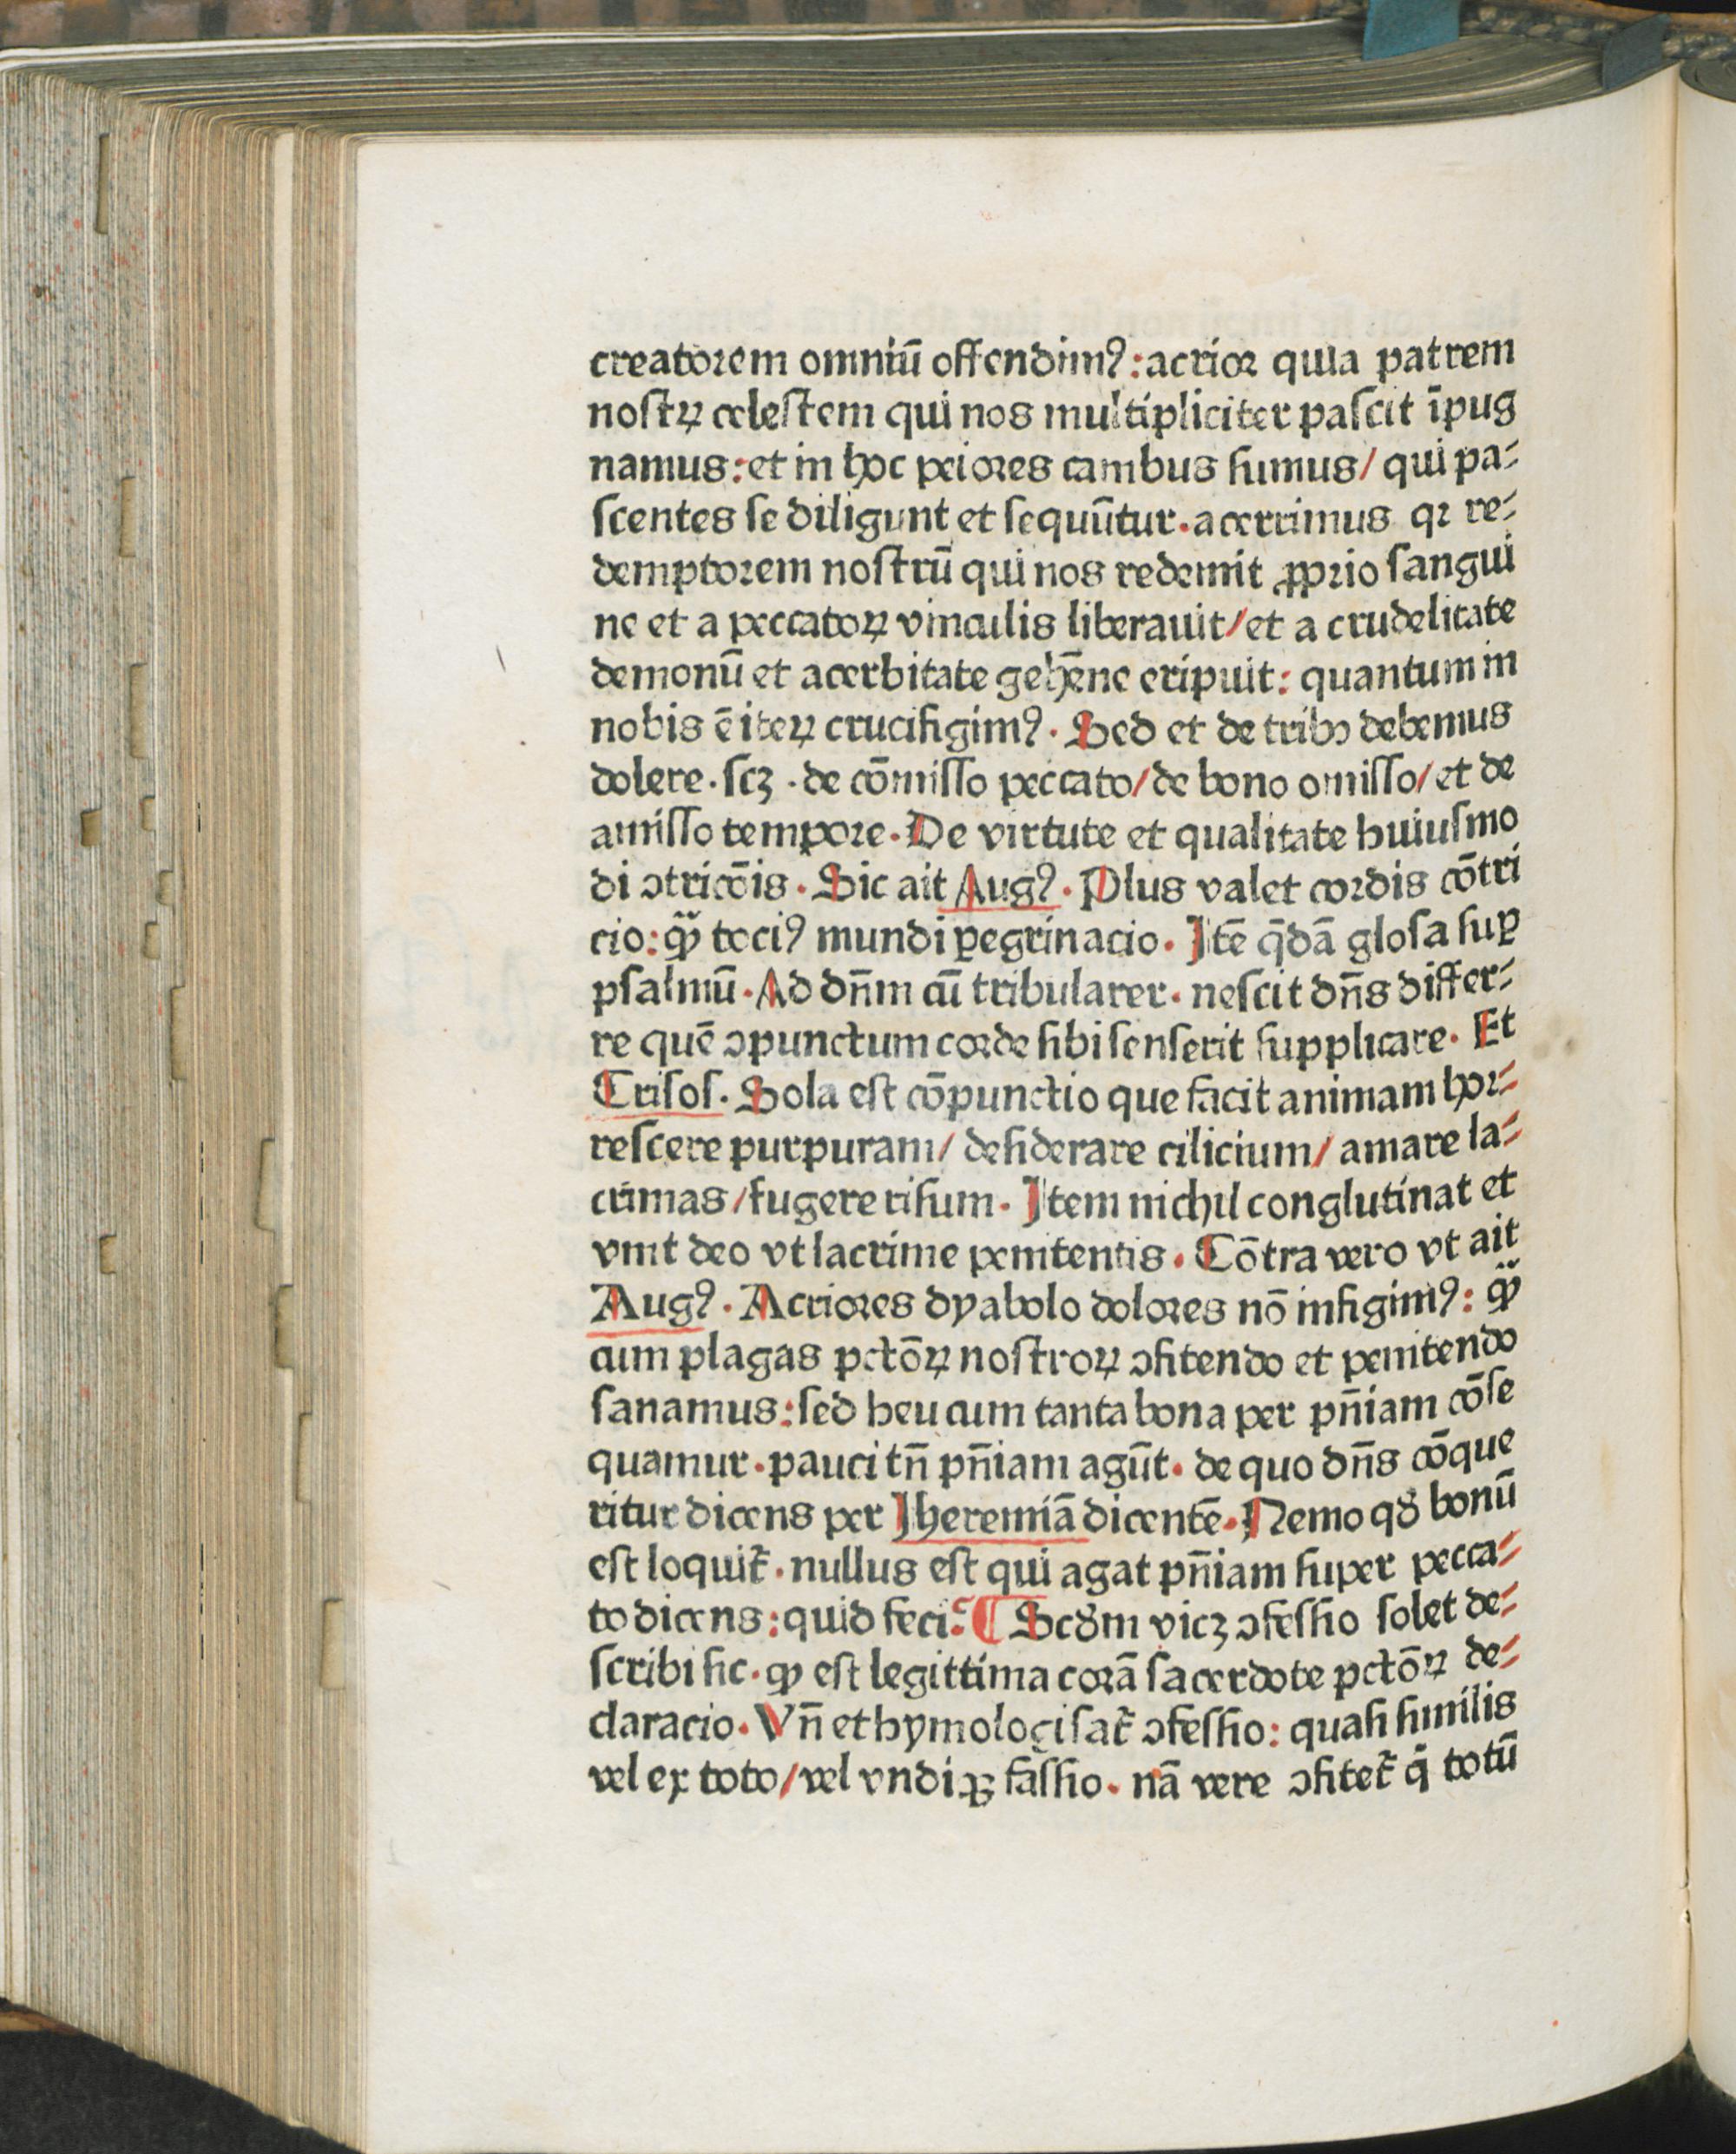 creatorem omniū offendimꝰ: acrior quia patrem
noſtꝝ celeſtem qui nos multipliciter paſcit īpug
namus: et in hoc peiores canibus ſumus/ qui pa⸗
ſcentes ſe diligunt et ſequūtur. acerrimus qꝛ re⸗
demptorem noſtrū qui nos redemit ꝓprio ſangui
ne et a peccatoꝝ vinculis liberauit/ et a crudelitate
demonū et acerbitate gehēne eripuit: quantum in
nobis ē iteꝝ crucifigimꝰ. Sed et de tribꝫ debemus
dolere. ſcꝫ. de cōmiſſo peccato/ de bono omiſſo/ et de
amiſſo tempore. De virtute et qualitate huiuſmo
di ↄtricōis. Sic ait Augꝰ. Plus valet cordis cōtri
cio: qͣꝫ tociꝰ mundi ꝑegrinacio. Itē q̄dā gloſa ſuꝑ
pſalmū. Ad dn̄m cū tribularer. neſcit dn̄s differ⸗
re quē ↄpunctum corde ſibi ſenſerit ſupplicare. Et
Criſoſ. Sola eſt cōpunctio que facit animam hor⸗
reſcere purpuram/ deſiderare cilicium/ amare la⸗
crimas/ fugere riſum. Item nichil conglutinat et
vnit deo vt lacrime penitentis. Cōtra vero vt ait
Augꝰ. Acriores dyabolo dolores nō infigimꝰ: qͣꝫ
cum plagas pctōꝝ noſtroꝝ ↄfitendo et penitendo
ſanamus: ſed heu cum tanta bona per pn̄iam cōſe
quamur. pauci tn̄ pn̄iam agūt. de quo dn̄s cōque
ritur dicens per Jheremiā dicentē. Nemo qđ bonū
eſt loquit̃. nullus eſt qui agat pn̄iam ſuper pecca⸗
to dicens: quid feci? ¶ Scđm vicꝫ ↄfeſſio ſolet de⸗
ſcribi ſic. ꝙ eſt legittima corā ſacerdote pctōꝝ de⸗
claracio. Vn̄ ethymologiſat̃ ↄfeſſio: quaſi ſimilis
vel ex toto/ vel vndiqꝫ faſſio. nā vere ↄfitet̃ q̇ totū